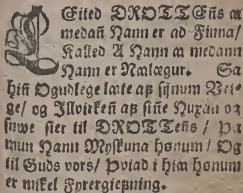 LEited DROTTEns a
medan Hann er ad Finna/
Kalled A Hann a medann
Hann er Nælægur. Sa
hin Ogudlege læte af sijnum Veige/
og Illvirken af sine Huxan og
snwe sier til DROTTEns / Þa
mun Hann Myskuna hønum / Og
til Guds vors / Þviad i hia hønum
er mikel Fyrergiefning.